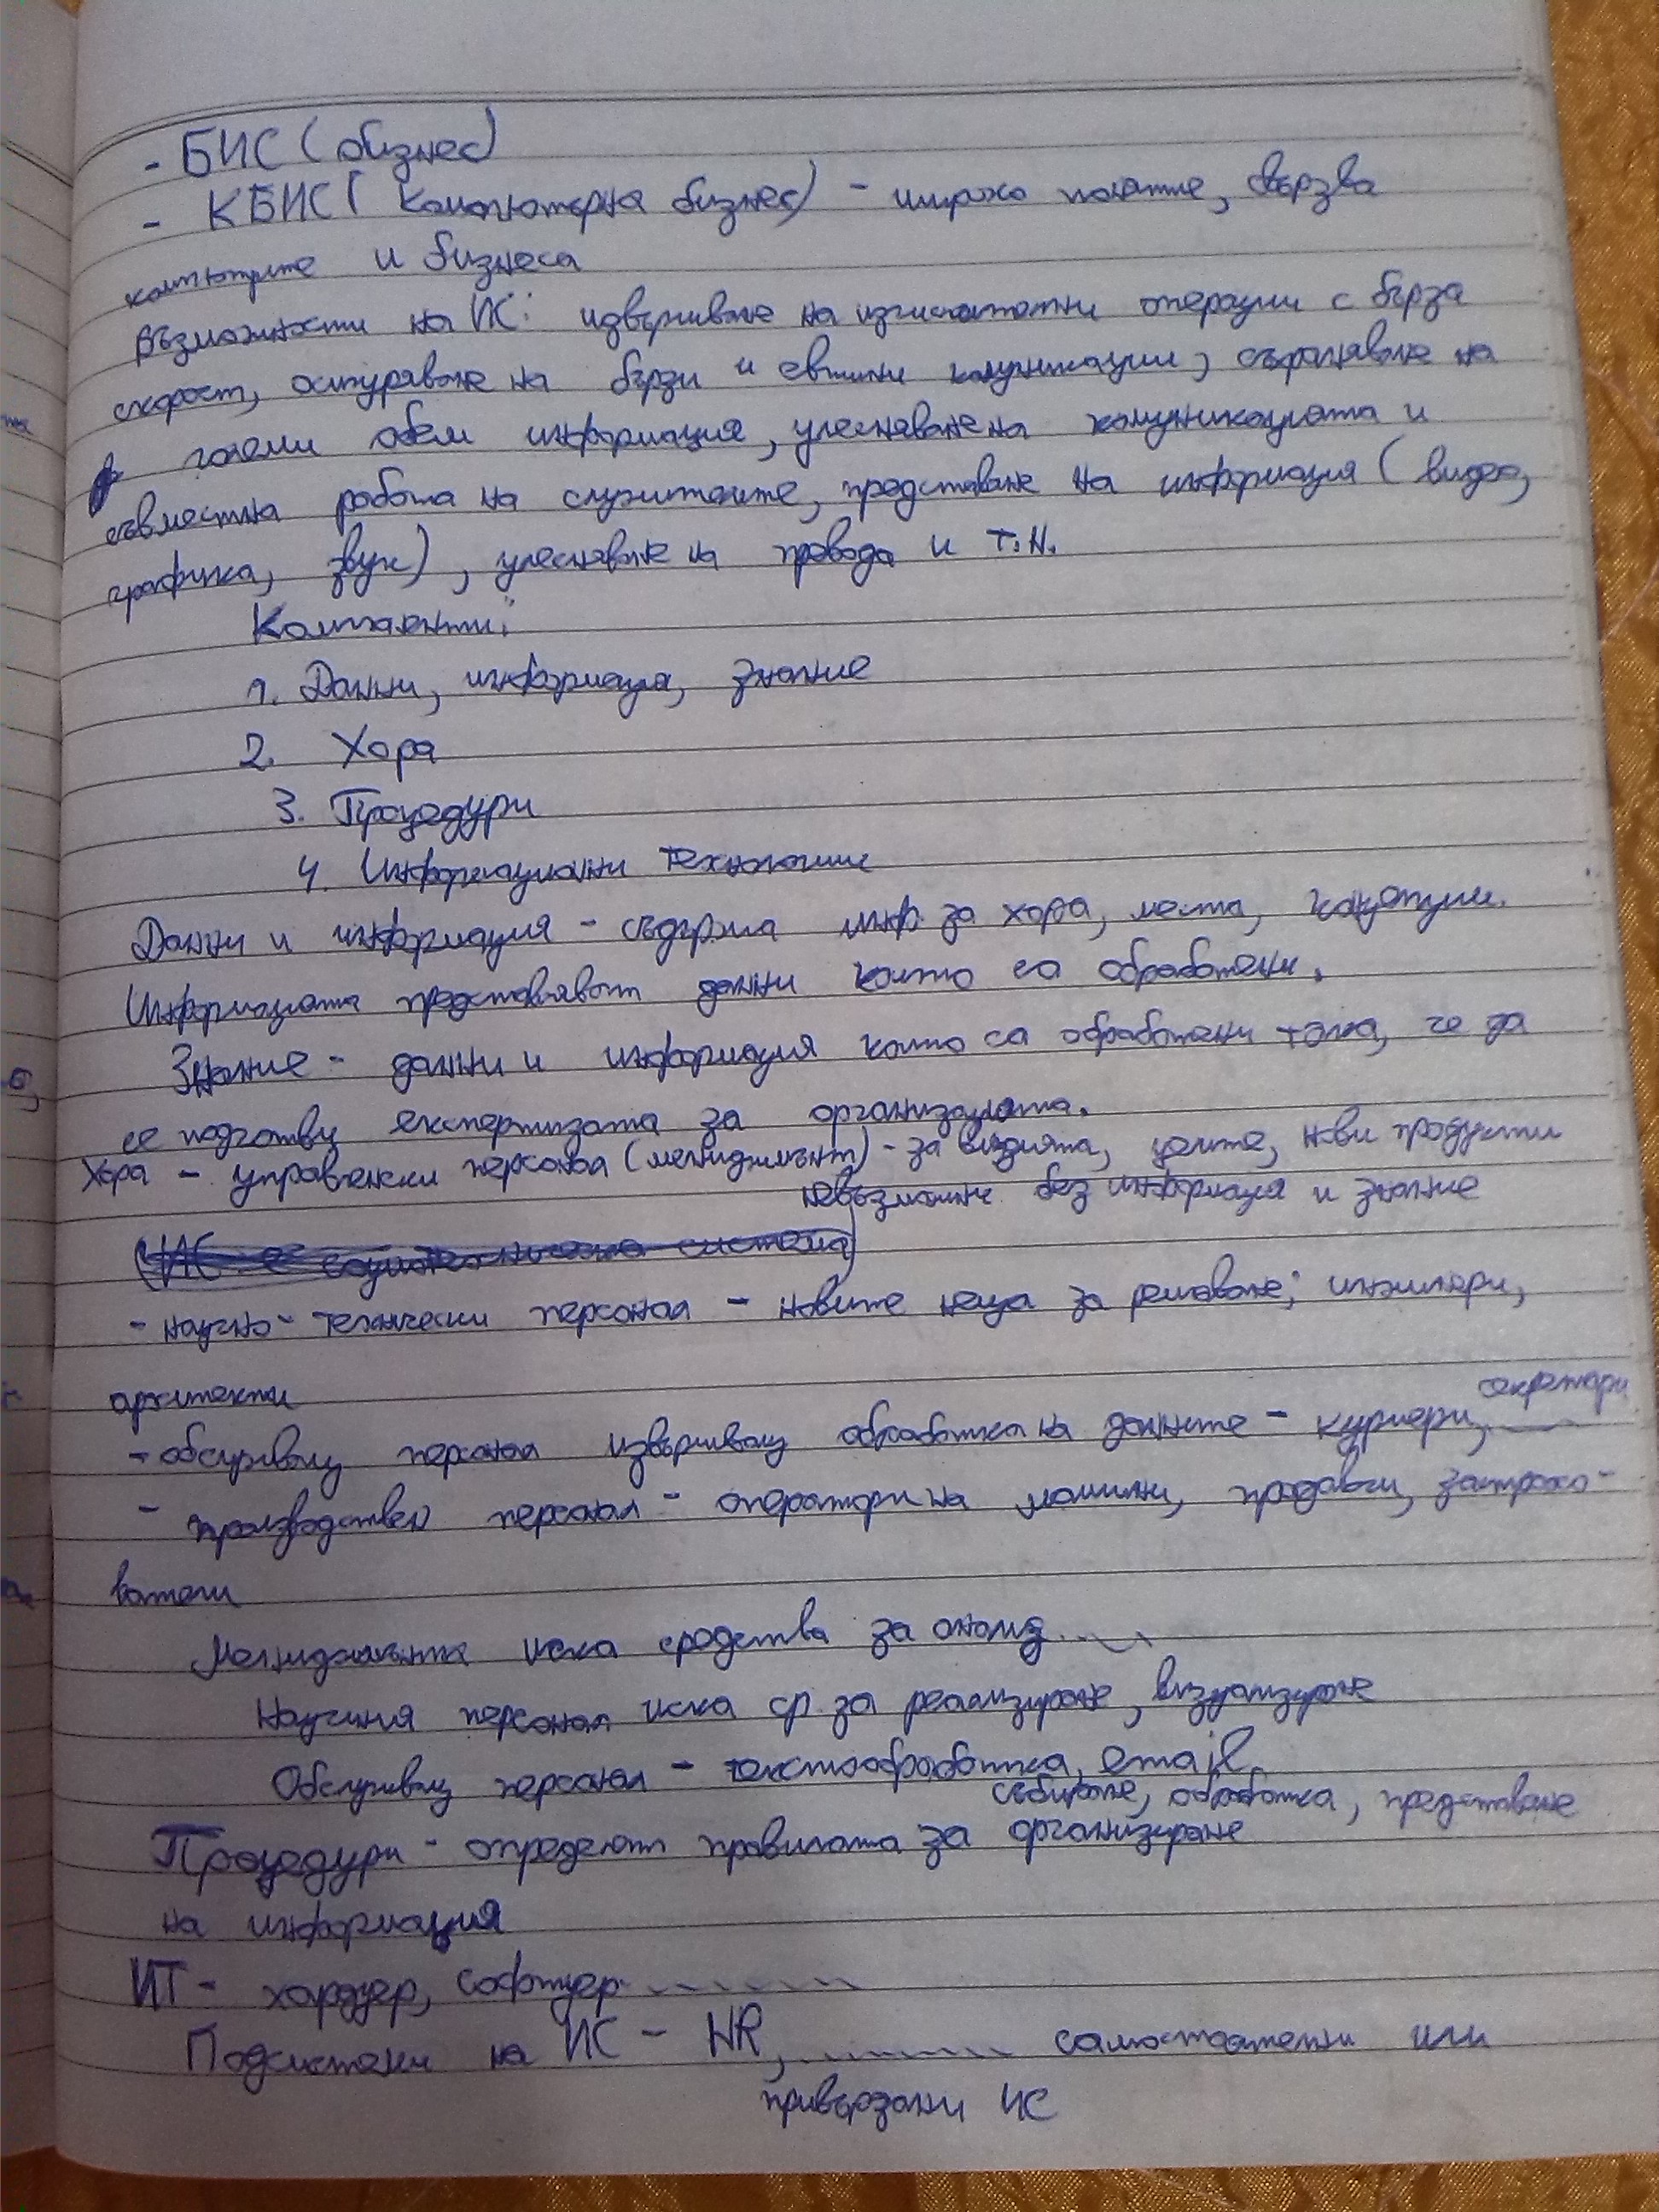 - БИС (бизнес)
- КБИС (Компютърна бизнес) - широко понятие, свързва
компютрите и бизнеса
Възможности на ИС: извършване на изчислителни операции с бърза
скорост, осигуряване на бързи и евтини комуникации, съхраняване на
големи обем информация, улесняване на комуникацията и
съвместна работа на служителите, представяне на информация (видео,
графика, звук), улесняване на превода и т.н.
Компоненти:
1. Данни, информация, знание
2. Хора
3. Процедури
4. Информационни технологии
Данни и информация - съдържа инф. за хора, места, концепции.
Информацията представляват данни които са обработени.
Знание - данни и информация които са обработени така, че да
се подготвя експертизата за организацията.
Хора - управленски персонал (мениджмънт) - за визията, целите, нови продукти
невъзможно без информация и знание
(ИС е социотехническа система)
- научно-технически персонал - новите неща за решаване; инженери,
архитекти
- обслужващ персонал извършващ обработка на данните - куриери, секретари
- производствен персонал - оператори на машини, продавачи, застрахо-
ватели
Мениджмънта иска средства за анализ
Научния персонал иска ср. за реализиране, визуализиране
Обслужващ персонал - текстообработка, email,
събиране, обработка, представяне
Процедури - определят правилата за организиране
на информация
ИТ - хардуер, софтуер
Подсистеми на ИС - HR, самостоятелни или
привързани ИС